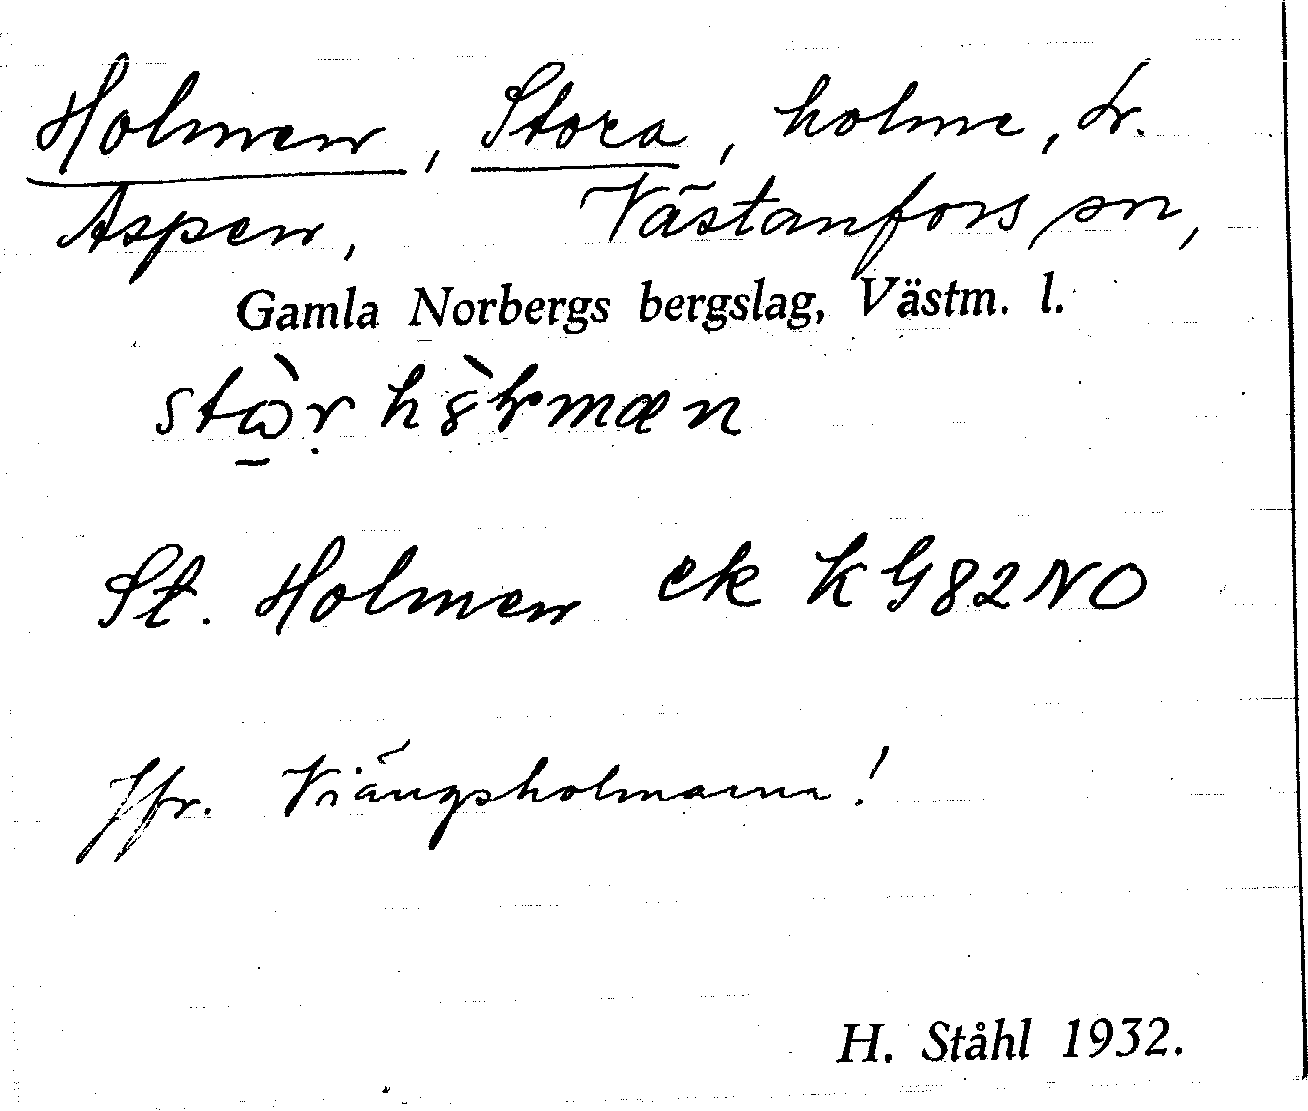 Holmen, Stora, holme, Ly.
Aspen, Västanfors sn,
Gamla Norbergs bergslag, Västm. l.
St. Holmen ek KG82NO
Jfr. Viängsholmarna!
H. Ståhl 1932.